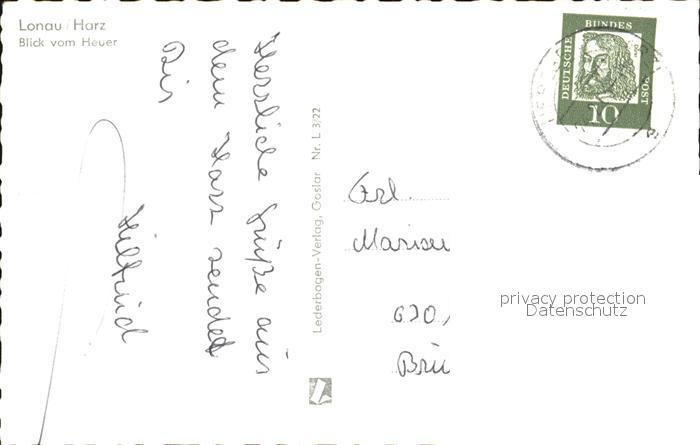 Lonau / Harz
Blick vom Heuer
Herzliche Grüße aus
dem Harz sendet
Dir
Lederbogen-Verlag, Goslar Nr. L 3/22
DEUTSCHE
BUNDES
POST
10
Frl.
630,
Brü
privacy protection
Datenschutz